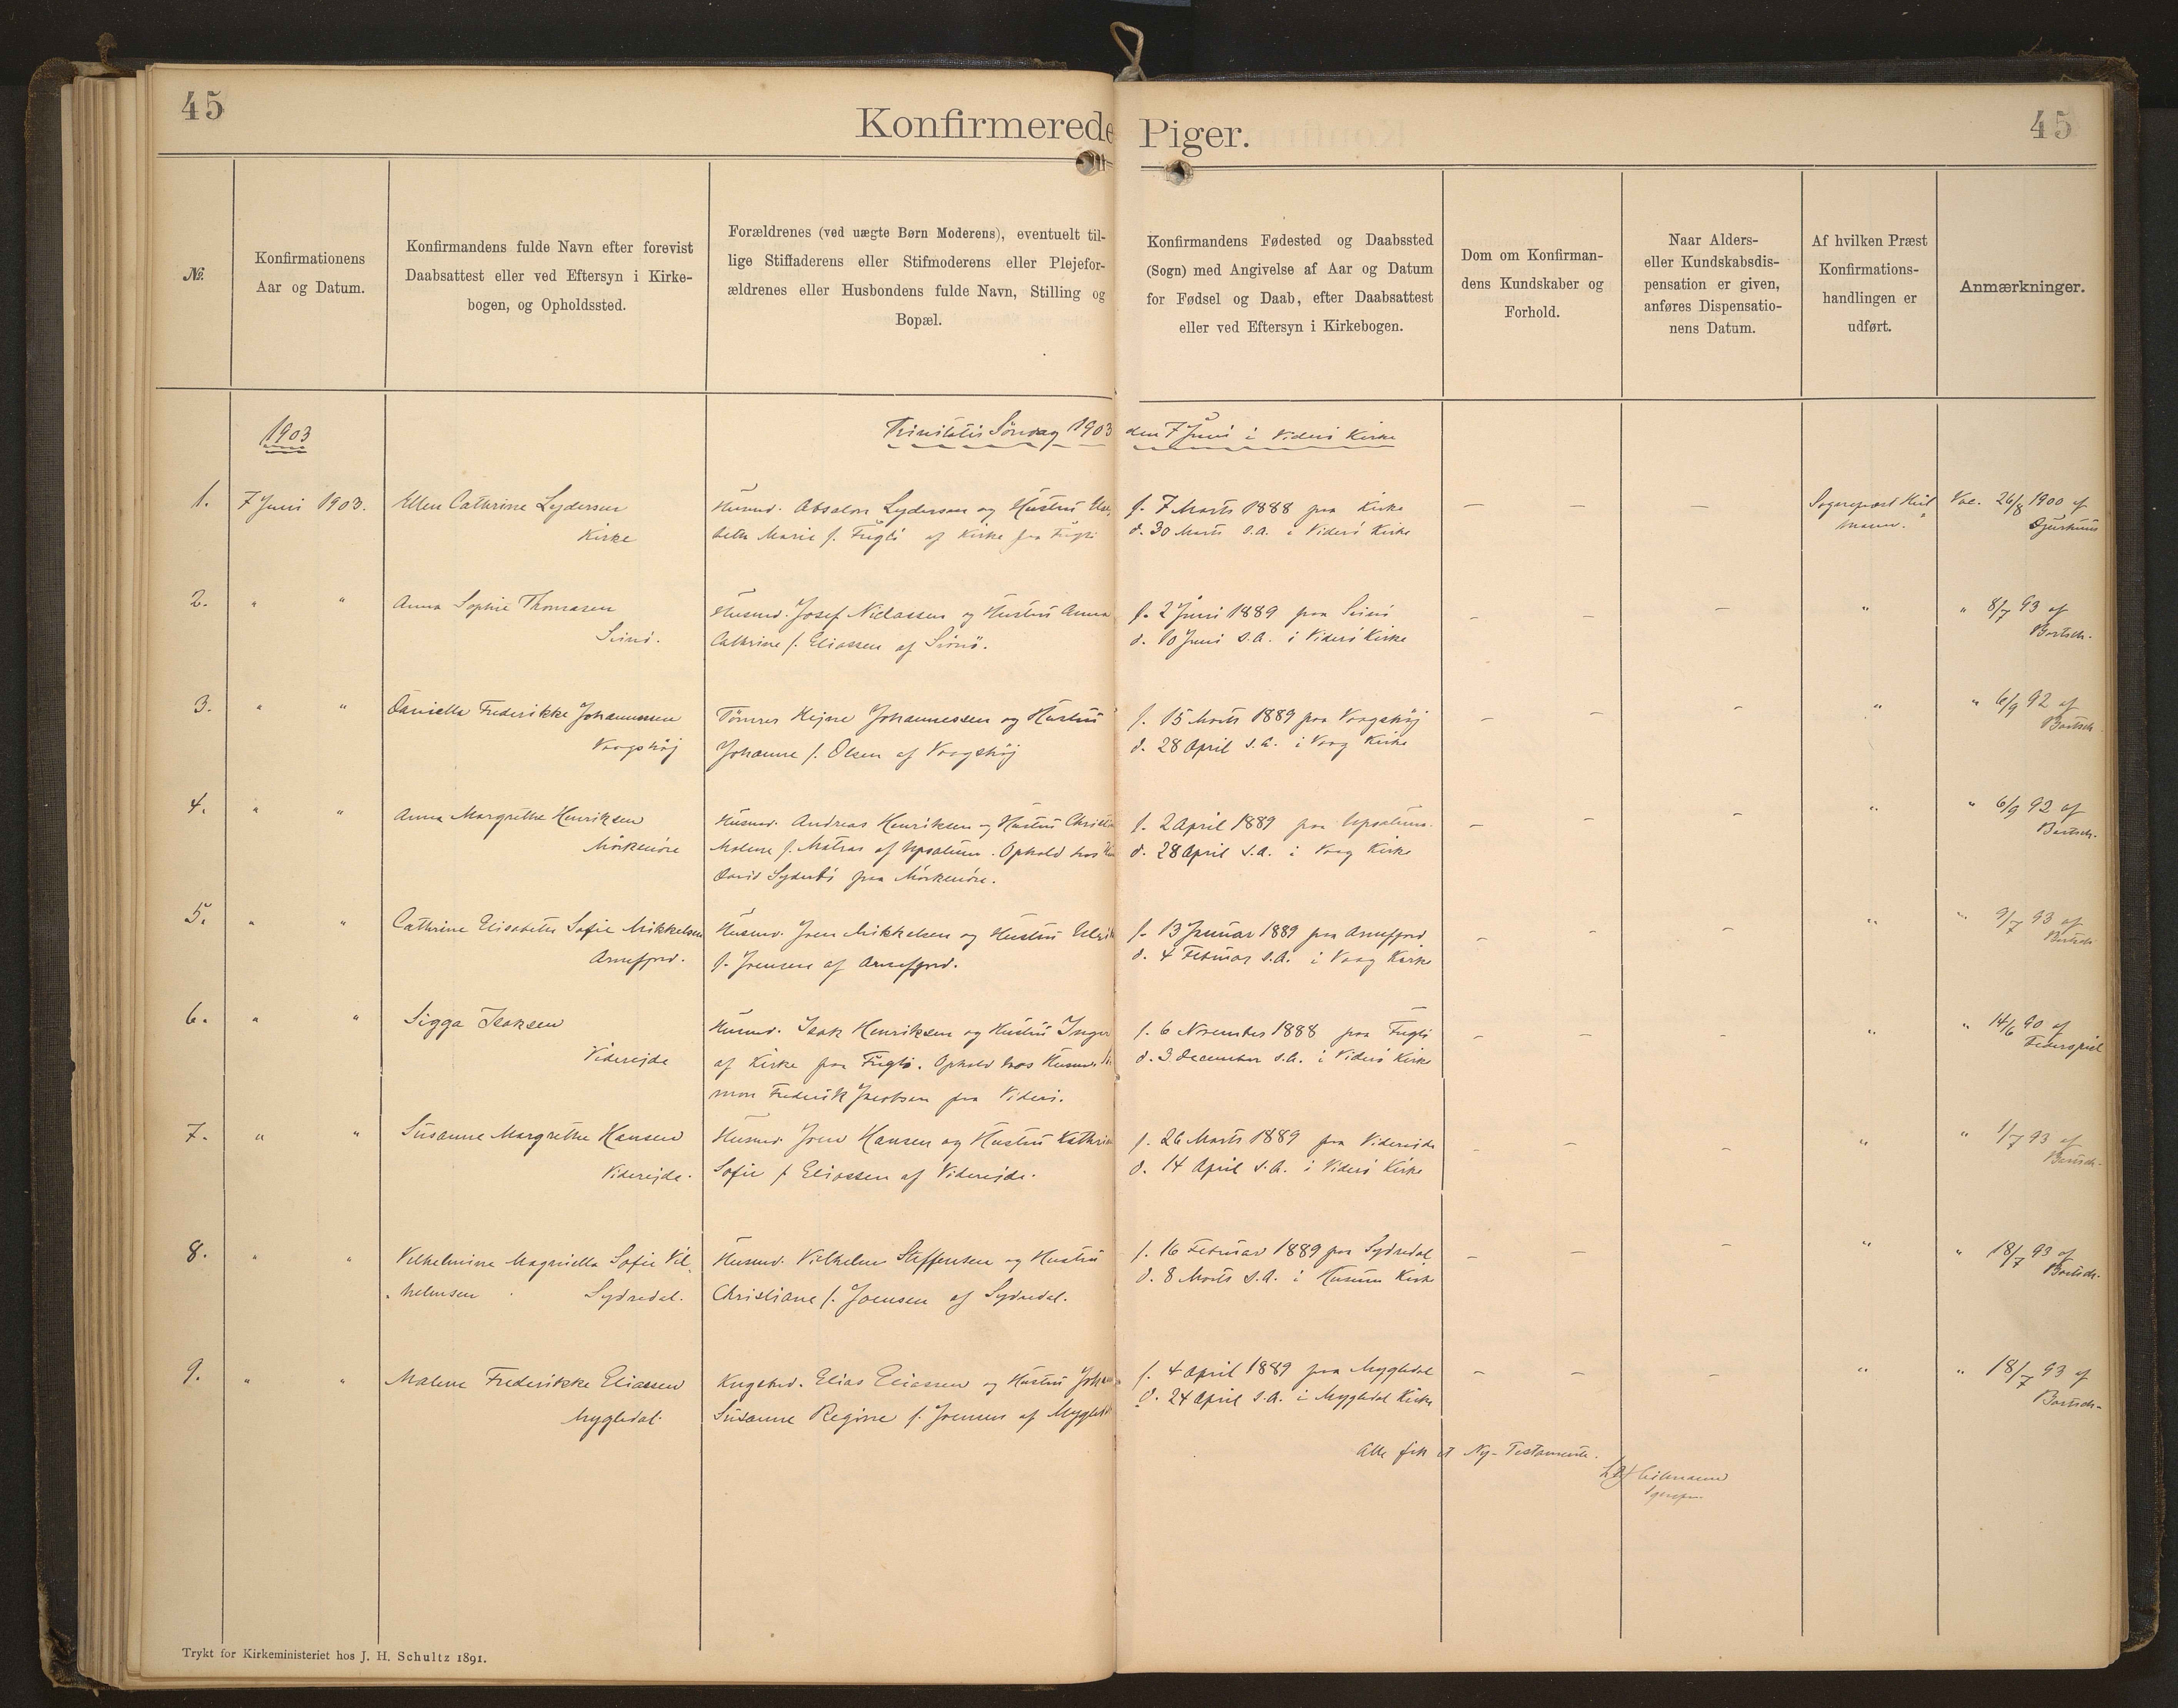 45
Konfirmerede Piger.
45
No.
Konfirmationens
Aar og Datum.
Konfirmandens fulde Navn efter forevist
Daabsattest eller ved Eftersyn i Kirke-
bogen, og Opholdssted.
Forældrenes (ved uægte Børn Moderens), eventuelt til-
lige Stiffaderens eller Stifmoderens eller Plejefor-
ældrenes eller Husbondens fulde Navn, Stilling og
Bopæl.
Konfirmandens Fødested og Daabssted
(Sogn) med Angivelse af Aar og Datum
for Fødsel og Daab, efter Daabsattest
eller ved Eftersyn i Kirkebogen.
Dom om Konfirman-
dens Kundskaber og
Forhold.
Naar Alders-
eller Kundskabsdis-
pensation er given,
anføres Dispensatio-
nens Datum.
Af hvilken Præst
Konfirmations-
handlingen er
udført.
Anmærkninger.
1903
Trinitatis Søndag 1903 den 7 Juni i Viderø Kirke
1.
7 Juni 1903.
Ellen Cathrine Lydersen
Kirke
Husmd. Absalon Lydersen og Hustru
beth Marie f. Fuglø af Kirke paa Fuglø
f. 7 Marts 1888 paa Kirke
d. 30 Marts s.a. i Viderø Kirke
— — —
Sognepræst Heil
mann.
Vac. 26/8 1900 af
2. " "
Anna Sophie Thomasen
Svinø.
Husmd. Josef Niclassen og Hustru Anna
Cathrine f. Eliassen af Svinø.
f. 2 Juni 1889 paa Svinø
d. 10 Juni s.a. i Viderø Kirke
— — —
"
" 8/7 93 af
Bartsch.
3. " "
Daniella Frederikke Johannessen
Vaagshøj
Tømrer Hejne Johannessen og Hustru
Johanne f. Olsen af Vaagshøj
f. 15 Marts 1889 paa Vaagshøj
d. 28 April s.a. i Vaag Kirke
— — —
"
" 6/9 92 af
Bartsch
4. " "
Anna Margrethe Henriksen
Mørkenøre
Husmd. Andreas Henriksen og Hustru
Malene f. Matras af Upsalum. Ophold hos
David Syderbø paa Mørkenøre.
f. 2 April 1889 paa Upsalum.
d. 28 April s.a. i Vaag Kirke
— — —
"
" 6/9 92 af
Bartsch.
5. " "
Cathrine Elisabeth Sofie Mikkelsen
Arnefjord.
Husmd. Joen Mikkelsen og Hustru
f. Joensen af Arnefjord.
f. 13 Januar 1889 paa Arnefjord
d. 4 Februar s.a. i Vaag Kirke
— — —
"
" 9/7 93 af
Bartsch
6. " "
Sigga Isaksen
Viderejde
Husmd. Isak Henriksen og Hustru Inger
af Kirke paa Fuglø. Ophold hos Husmd. Si
mon Frederik Jacobsen paa Viderø.
f. 6 November 1888 paa Fuglø
d. 3 December s.a. i Viderø Kirke
— — —
"
" 14/6 90 af
Federspiel
7. " "
Susanne Margrethe Hansen
Viderejde.
Husmd. Joen Hansen og Hustru Kathri
Sofie f. Eliassen af Viderejde.
f. 26 Marts 1889 paa Viderejde
d. 14 April s.a. i Viderø Kirke
— — —
"
" 1/7 93 af
Bartsch.
8. " "
Vilhelmine Magniella Sofie Vil-
helmsen Sydredal.
Husmd. Vilhelm Steffensen og Hustru
Christiane f. Joensen af Sydredal.
f. 16 Februar 1889 paa Sydredal
d. 8 Marts s.a. i Husum Kirke
— — —
"
" 18/7 93 af
Bartsch.
9. " "
Malene Frederikke Eliassen
Mygledal.
Kngsbd. Elias Eliassen og Hustru Joha
Susanne Regine f. Joensen af Mygled
f. 4 April 1889 paa Mygledal
d. 24 April s.a. i Mygledal Kirke
— — —
"
" 18/7 93 af
Bartsch.
Alle fik et Ny-Testamente.
Heilmann
Trykt for Kirkeministeriet hos J. H. Schultz 1891.